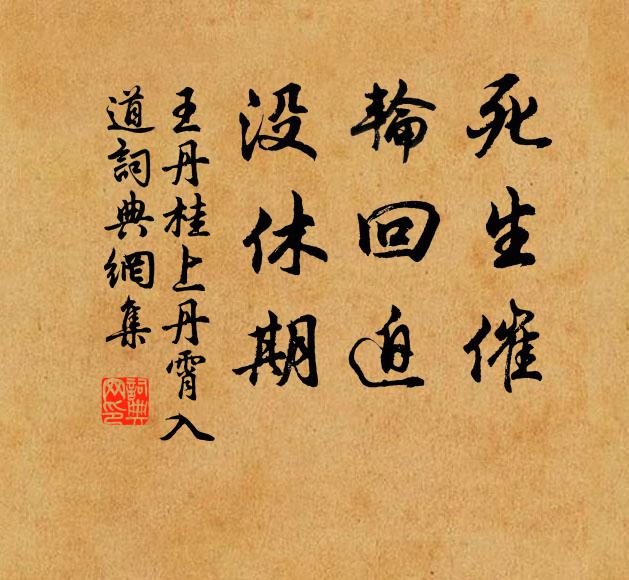 死生催
輪回迫
没休期
王丹桂上丹霄入
道詞典網集
詞典網印